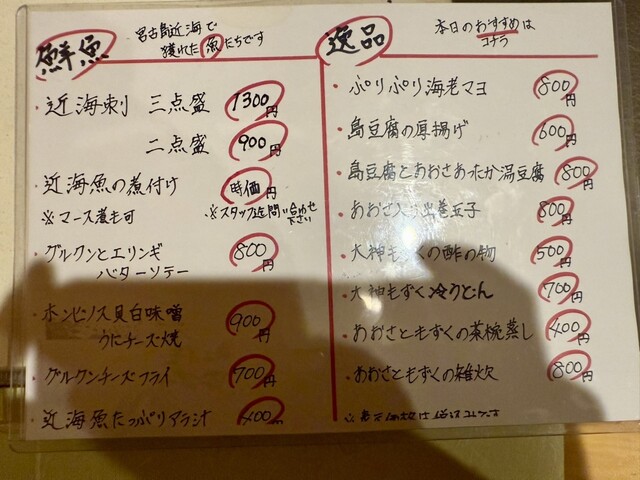 鮮魚
宮古島近海で
獲れた魚たちです
・近海刺 三点盛 1300円
二点盛 900円
・近海魚の煮付け 時価円
※マース煮も可 ※スタッフに問い合わせ下さい
・グルクンとエリンギ
バターソテー 800円
・ホンビノス貝白味噌
うにチーズ焼 900円
・グルクンチーズフライ 700円
・近海魚たっぷりアラ汁 400円
逸品
本日のおすすめは
コチラ
・ぷりぷり海老マヨ 800円
・島豆腐の厚揚げ 600円
・島豆腐とあおさあったか湯豆腐 800円
・あおさ入り出巻玉子 800円
・大神もずくの酢の物 500円
・大神もずく冷うどん 700円
・あおさともずくの茶椀蒸し 400円
・あおさともずくの雑炊 800円
※表示価格は税込みです